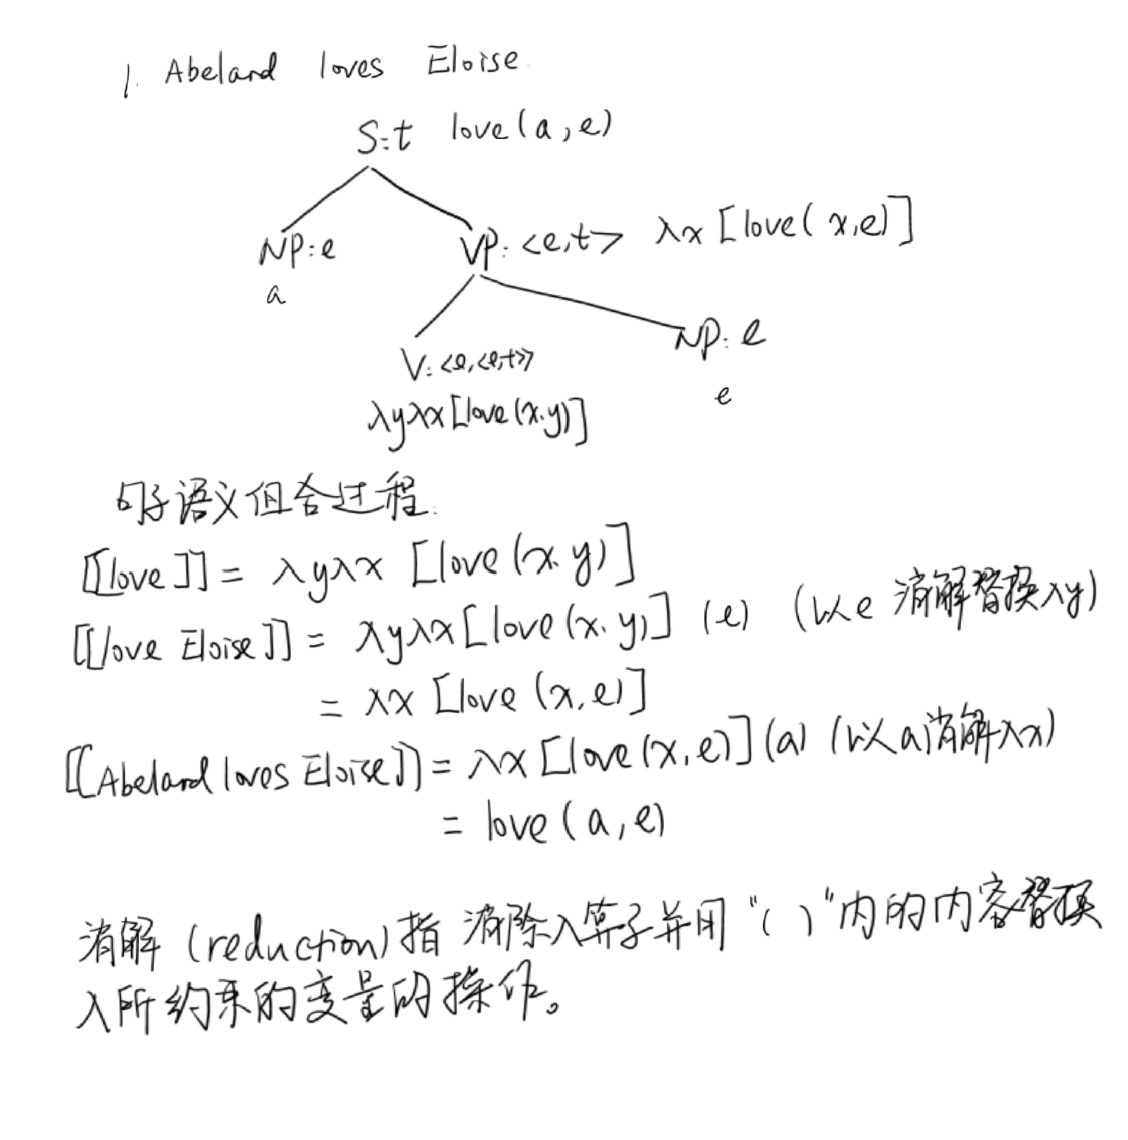 1. Abeland loves Eloise
S:t love(a,e)
NP:e VP:<e,t> λx[love(x,e)]
a
V:<e,<e,t>> NP:e
λyλx[love(x.y)] e
句子语义组合过程.
[[love]] = λyλx [love(x.y)]
[[love Eloise]] = λyλx[love(x.y)] (e) (以e 消解替换λy)
= λx [love (x,e)]
[[Abeland loves Eloise]] = λx[love(x,e)](a) (以a消解λx)
= love(a,e)
消解 (reduction)指 消除λ算子并用“( )”内的内容替换
λ所约束的变量的操作。